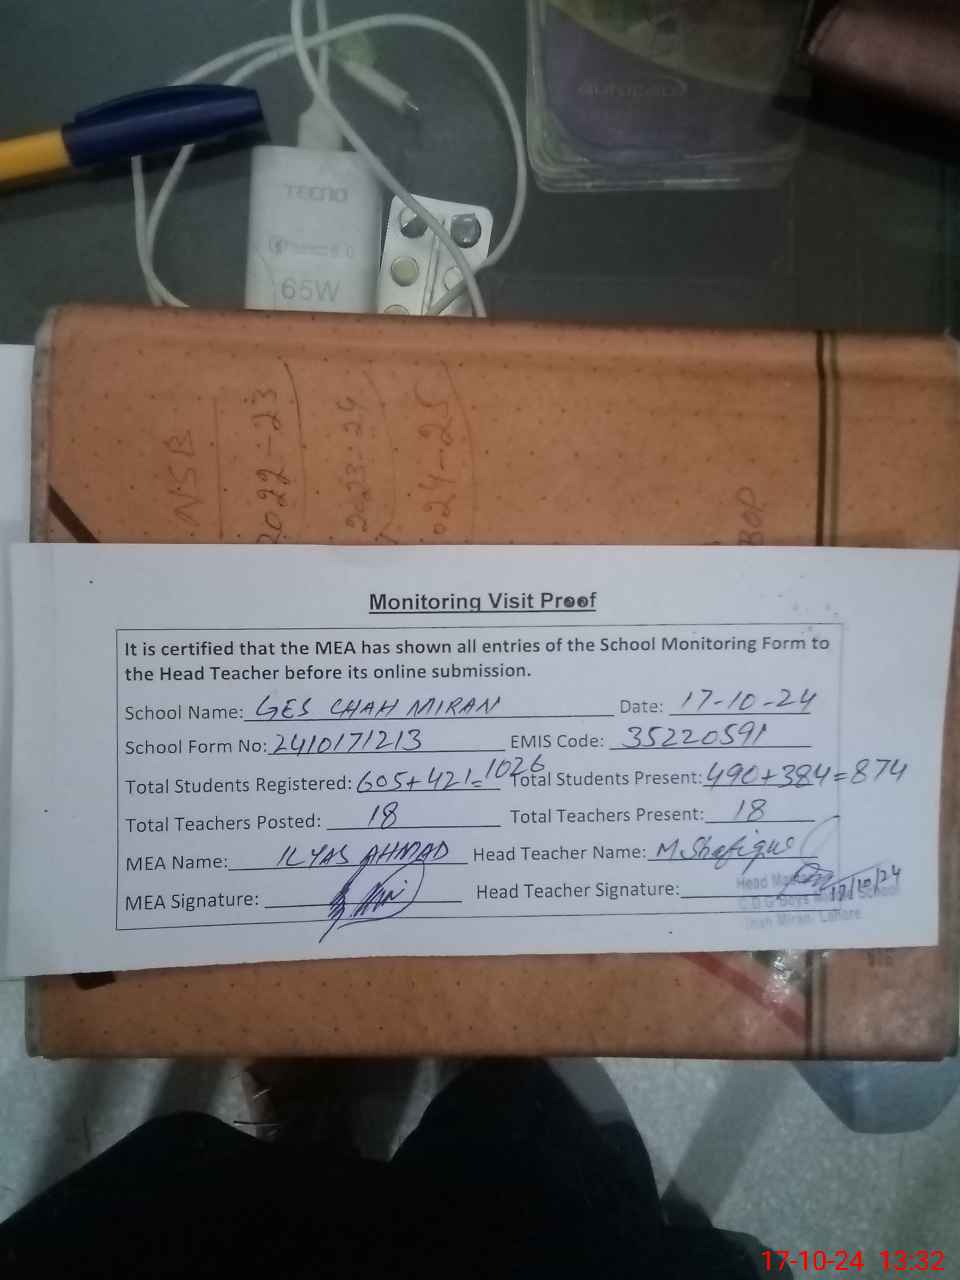 AUTOCARE
TECNO
65W
NSB
2022-23
2023-24
2024-25
BOP
Monitoring Visit Proof
It is certified that the MEA has shown all entries of the School Monitoring Form to
the Head Teacher before its online submission.
School Name: GES CHAH MIRAN Date: 17-10-24
School Form No: 2410171213 EMIS Code: 35220591
Total Students Registered: 605+421=1026 Total Students Present: 490+384=874
Total Teachers Posted: 18 Total Teachers Present: 18
MEA Name: ILYAS AHMAD Head Teacher Name: M.Shafique
MEA Signature: Head Teacher Signature: 17/10/24
Head
C.D.G Boys School
Chah Miran, Lahore
17-10-24 13:32